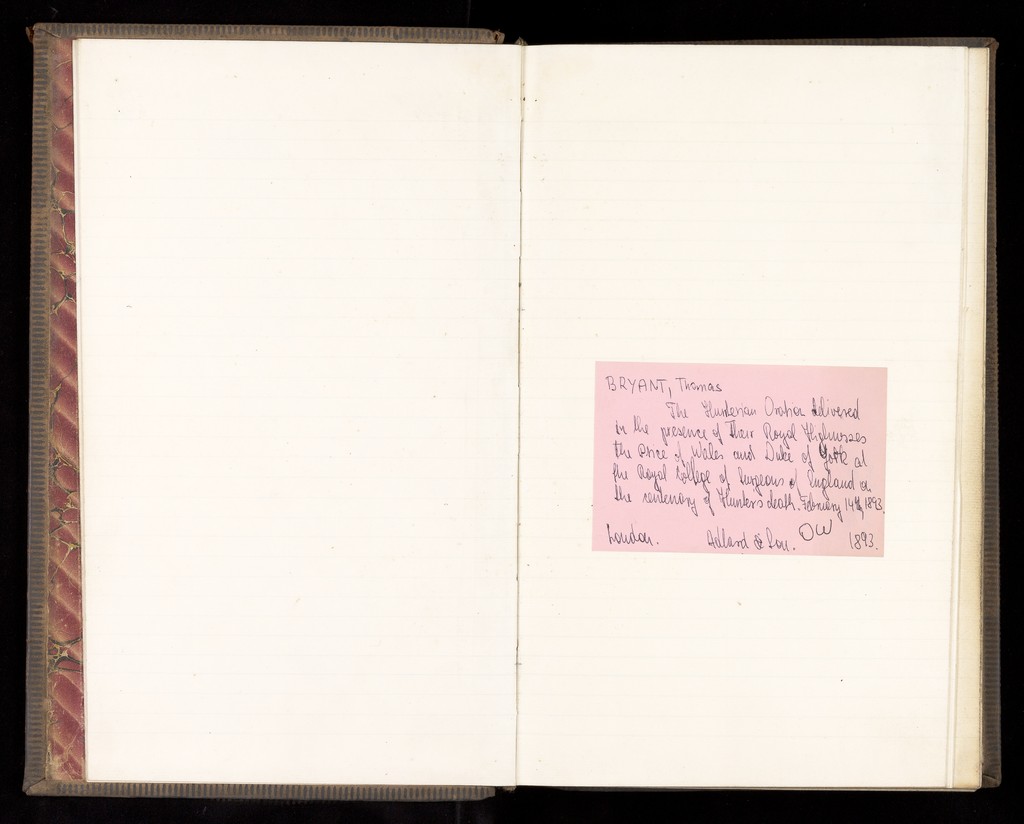 BRYANT, Thomas
The Hunterian Oration delivered
in the presence of Their Royal Highnesses
the Price of Wales and Duke of York at
the Royal College of Surgeons of England on
the centenary of Hunter's death. February 14th, 1893.
London. Adlard & Son. OW 1893.